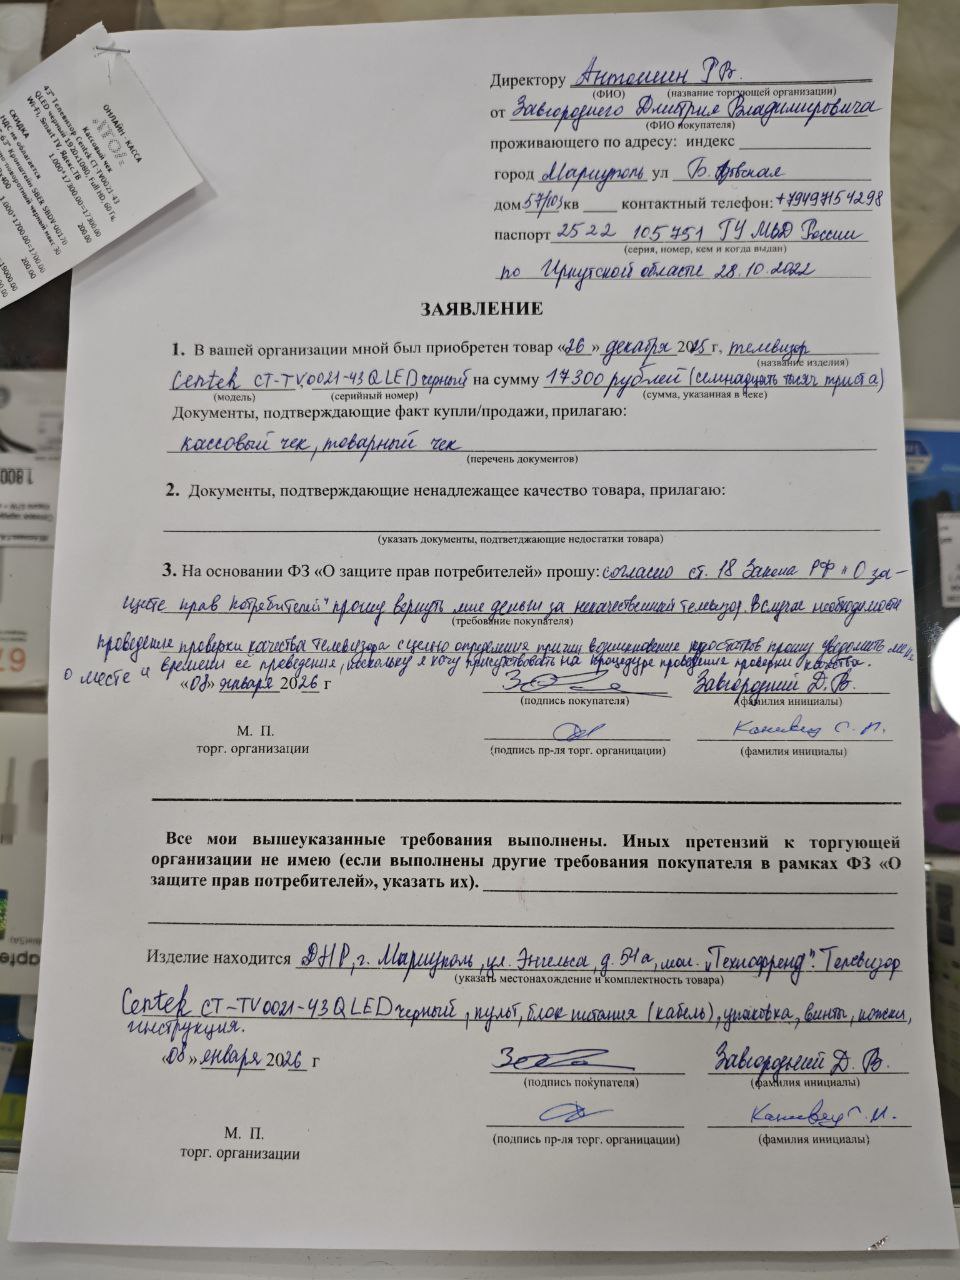 ОНЛАЙН - КАССА
Кассовый чек
43" Телевизор Centek CT-TV0021-43
QLED черный 1920x1080, Full HD, 60 Гц,
Wi-Fi, SmartTV, Яндекс.ТВ
1.000*17300.00=17300.00
СКИДКА 200.00
НДС не облагается
Кронштейн SBER SBDV-00170
1.000*1700.00=1700.00
200.00
Директору Антошин Р В.
(ФИО) (название торгующей организации)
от Завгороднего Дмитрия Владимировича
(ФИО покупателя)
проживающего по адресу: индекс
город Мариуполь ул Б. Азовская
дом 57/103 кв контактный телефон: +79497154298
паспорт 2522 105751 ГУ МВД России
(серия, номер, кем и когда выдан)
по Иркутской области 28.10.2022
ЗАЯВЛЕНИЕ
1. В вашей организации мной был приобретен товар «26» декабря 2025 г, телевизор
(название изделия)
Centek CT-TV0021-43 QLED черный на сумму 17300 рублей (семнадцать тысяч триста)
(модель) (серийный номер) (сумма, указанная в чеке)
Документы, подтверждающие факт купли/продажи, прилагаю:
кассовый чек, товарный чек
(перечень документов)
2. Документы, подтверждающие ненадлежащее качество товара, прилагаю:
(указать документы, подтветджающие недостатки товара)
3. На основании ФЗ «О защите прав потребителей» прошу: согласно ст. 18 Закона РФ "О за-
щите прав потребителей" прошу вернуть мне деньги за некачественный телевизор. В случае необходимости
(требование покупателя)
проведения проверки качества телевизора с целью определения причин возникновения недостатков прошу уведомить меня
о месте и времени её проведения, поскольку я хочу присутствовать на процедуре проведения проверки качества.
«08» января 2026 г Завгородний Д. В.
(подпись покупателя) (фамилия инициалы)
М. П. Канивец С. Н.
торг. организации (подпись пр-ля торг. органицации) (фамилия инициалы)
Все мои вышеуказанные требования выполнены. Иных претензий к торгующей
организации не имею (если выполнены другие требования покупателя в рамках ФЗ «О
защите прав потребителей», указать их).
Изделие находится ДНР, г. Мариуполь, ул. Энгельса, д. 54а, маг. „Технофренд". Телевизор
(указать местонахождение и комплектность товара)
Centek CT-TV0021-43 QLED черный, пульт, блок питания (кабель), упаковка, винты, ножки,
инструкция.
«08» января 2026 г Завгородний Д. В.
(подпись покупателя) (фамилия инициалы)
Канивец С. Н.
М. П. (подпись пр-ля торг. органицации) (фамилия инициалы)
торг. организации